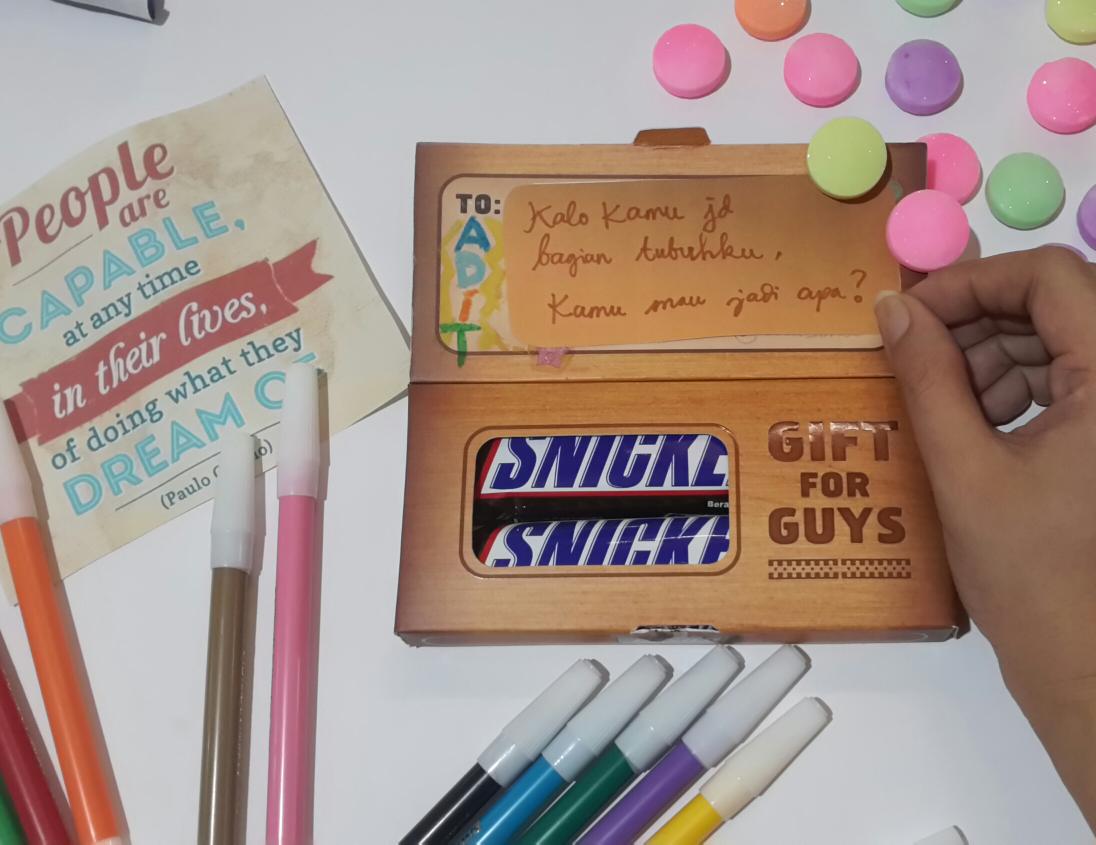 People
are
CAPABLE,
at any time
in their lives,
of doing what they
DREAM
(Paulo
TO:
ADIT
Kalo Kamu jd
bagian tubuhku,
Kamu mau jadi apa?
SNICKE
SNICKE
GIFT
FOR
GUYS